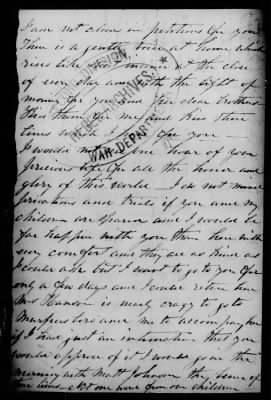 I am not alone in petitions for you
There is a gentle voice at home which
rises like this manner at the close
of every day and with the light of
morning for you and her dear brothers
Kiss them for me and kiss them
times which I for you
I would not one hour of your
precious life for all the honor and
glory of this world I do not mind
privations and trials if you and my
children are spared and I would be
far happier with you than here with
every comfort and they are as kind as
I could ask but I want to go to you for
only a few days and I could return here
Mrs Hanson is nearly crazy to go to
and me to accompany her
if I had just an intimation that you
would approve of it I would join the
morning with Matt Johnson the bearer of
these lines not one word from our children
DIVISION,
ARCHIVES
WAR DEPAR